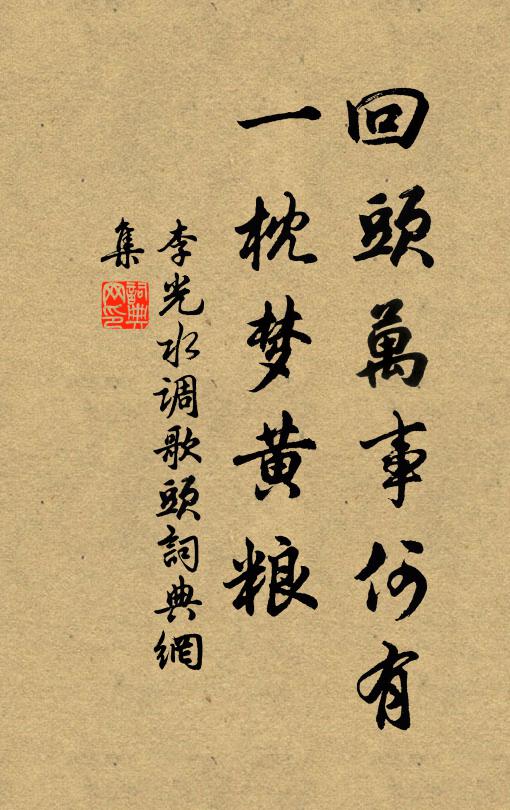 回頭萬事何有
一枕梦黄粮
李光水调歌頭詞典網
集
詞典
网印